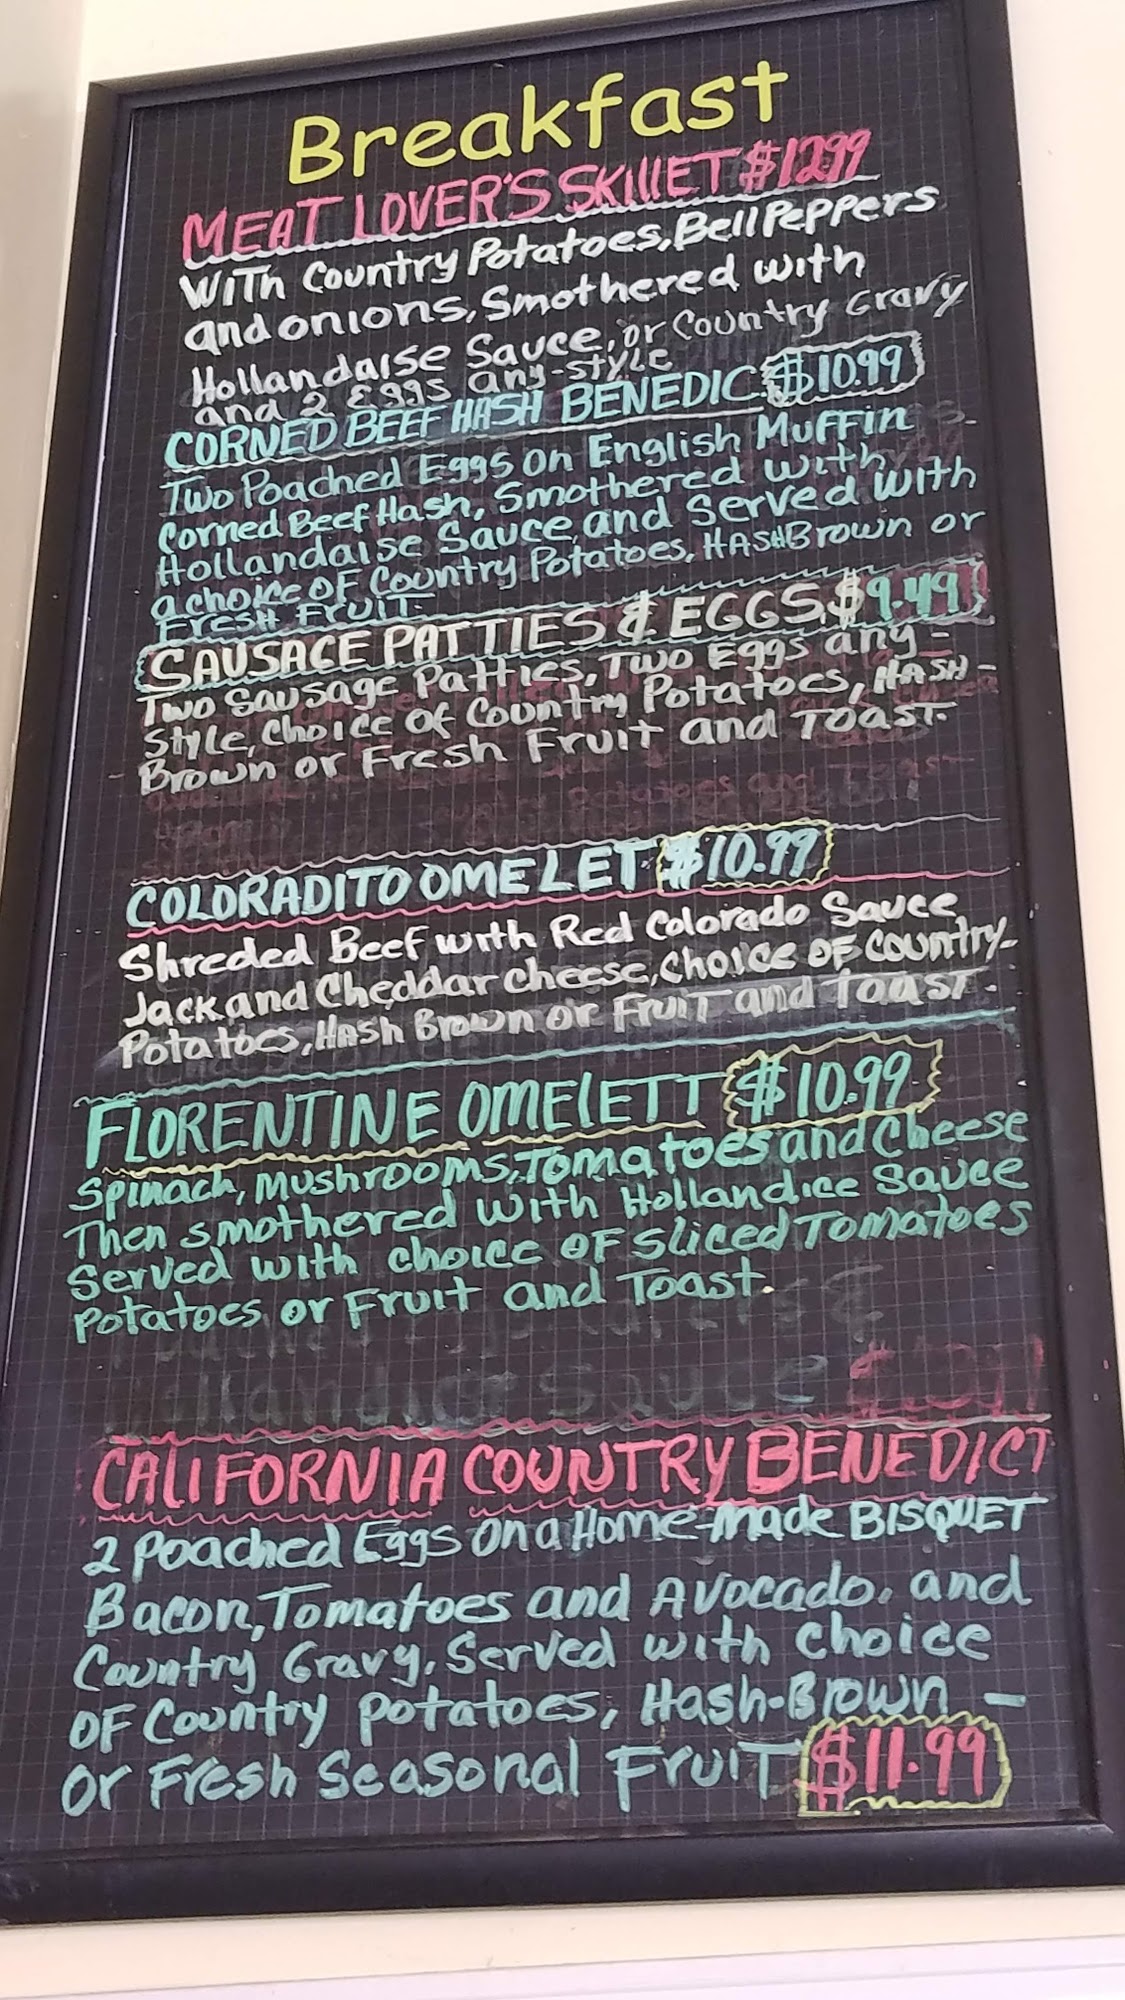 Breakfast
MEAT LOVER'S SKIllET $1299
WITH Country Potatoes, Bell Peppers
and onions, Smothered with
Hollandaise Sauce, or Country Gravy
and 2 Eggs any-style
CORNED BEEF HASH BENEDIC $10.99
Two Poached Eggs on English Muffin
Corned Beef Hash, Smothered with
Hollandaise Sauce, and Served with
a choice of Country Potatoes, HASHBrown or
FRESH FRUIT.
SAUSAGE PATTIES & EGGS $9.49
Two Sausage Patties, Two Eggs any-
Style, Choice of Country Potatoes, HASH-
Brown or Fresh Fruit and Toast.
COLORADITO OMELET $10.99
Shreded Beef with Red Colorado Sauce
Jack and Cheddar cheese, Choice of Country-
Potatoes, Hash Brown or Fruit and Toast.
FLORENTINE OMElETT $10.99
Spinach, Mushrooms, Tomatoes and Cheese
Then smothered with Hollandice Sauce
Served with choice of Sliced Tomatoes
Potatoes or Fruit and Toast.
Sauce
CALIFORNIA COUNTRY BENEDICT
2 Poached Eggs on a Home-made BISQUET
Bacon, Tomatoes and Avocado, and
Country Gravy, Served with choice
of Country Potatoes, Hash-Brown -
or Fresh Seasonal Fruit $11.99